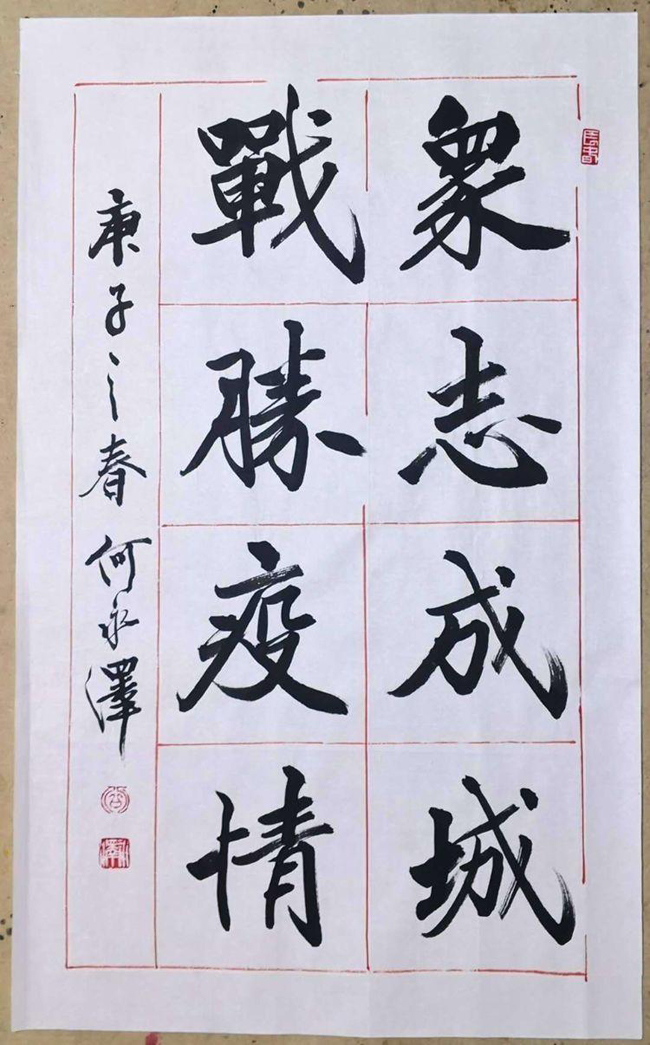 眾志成城
戰勝疫情
庚子之春 何永澤